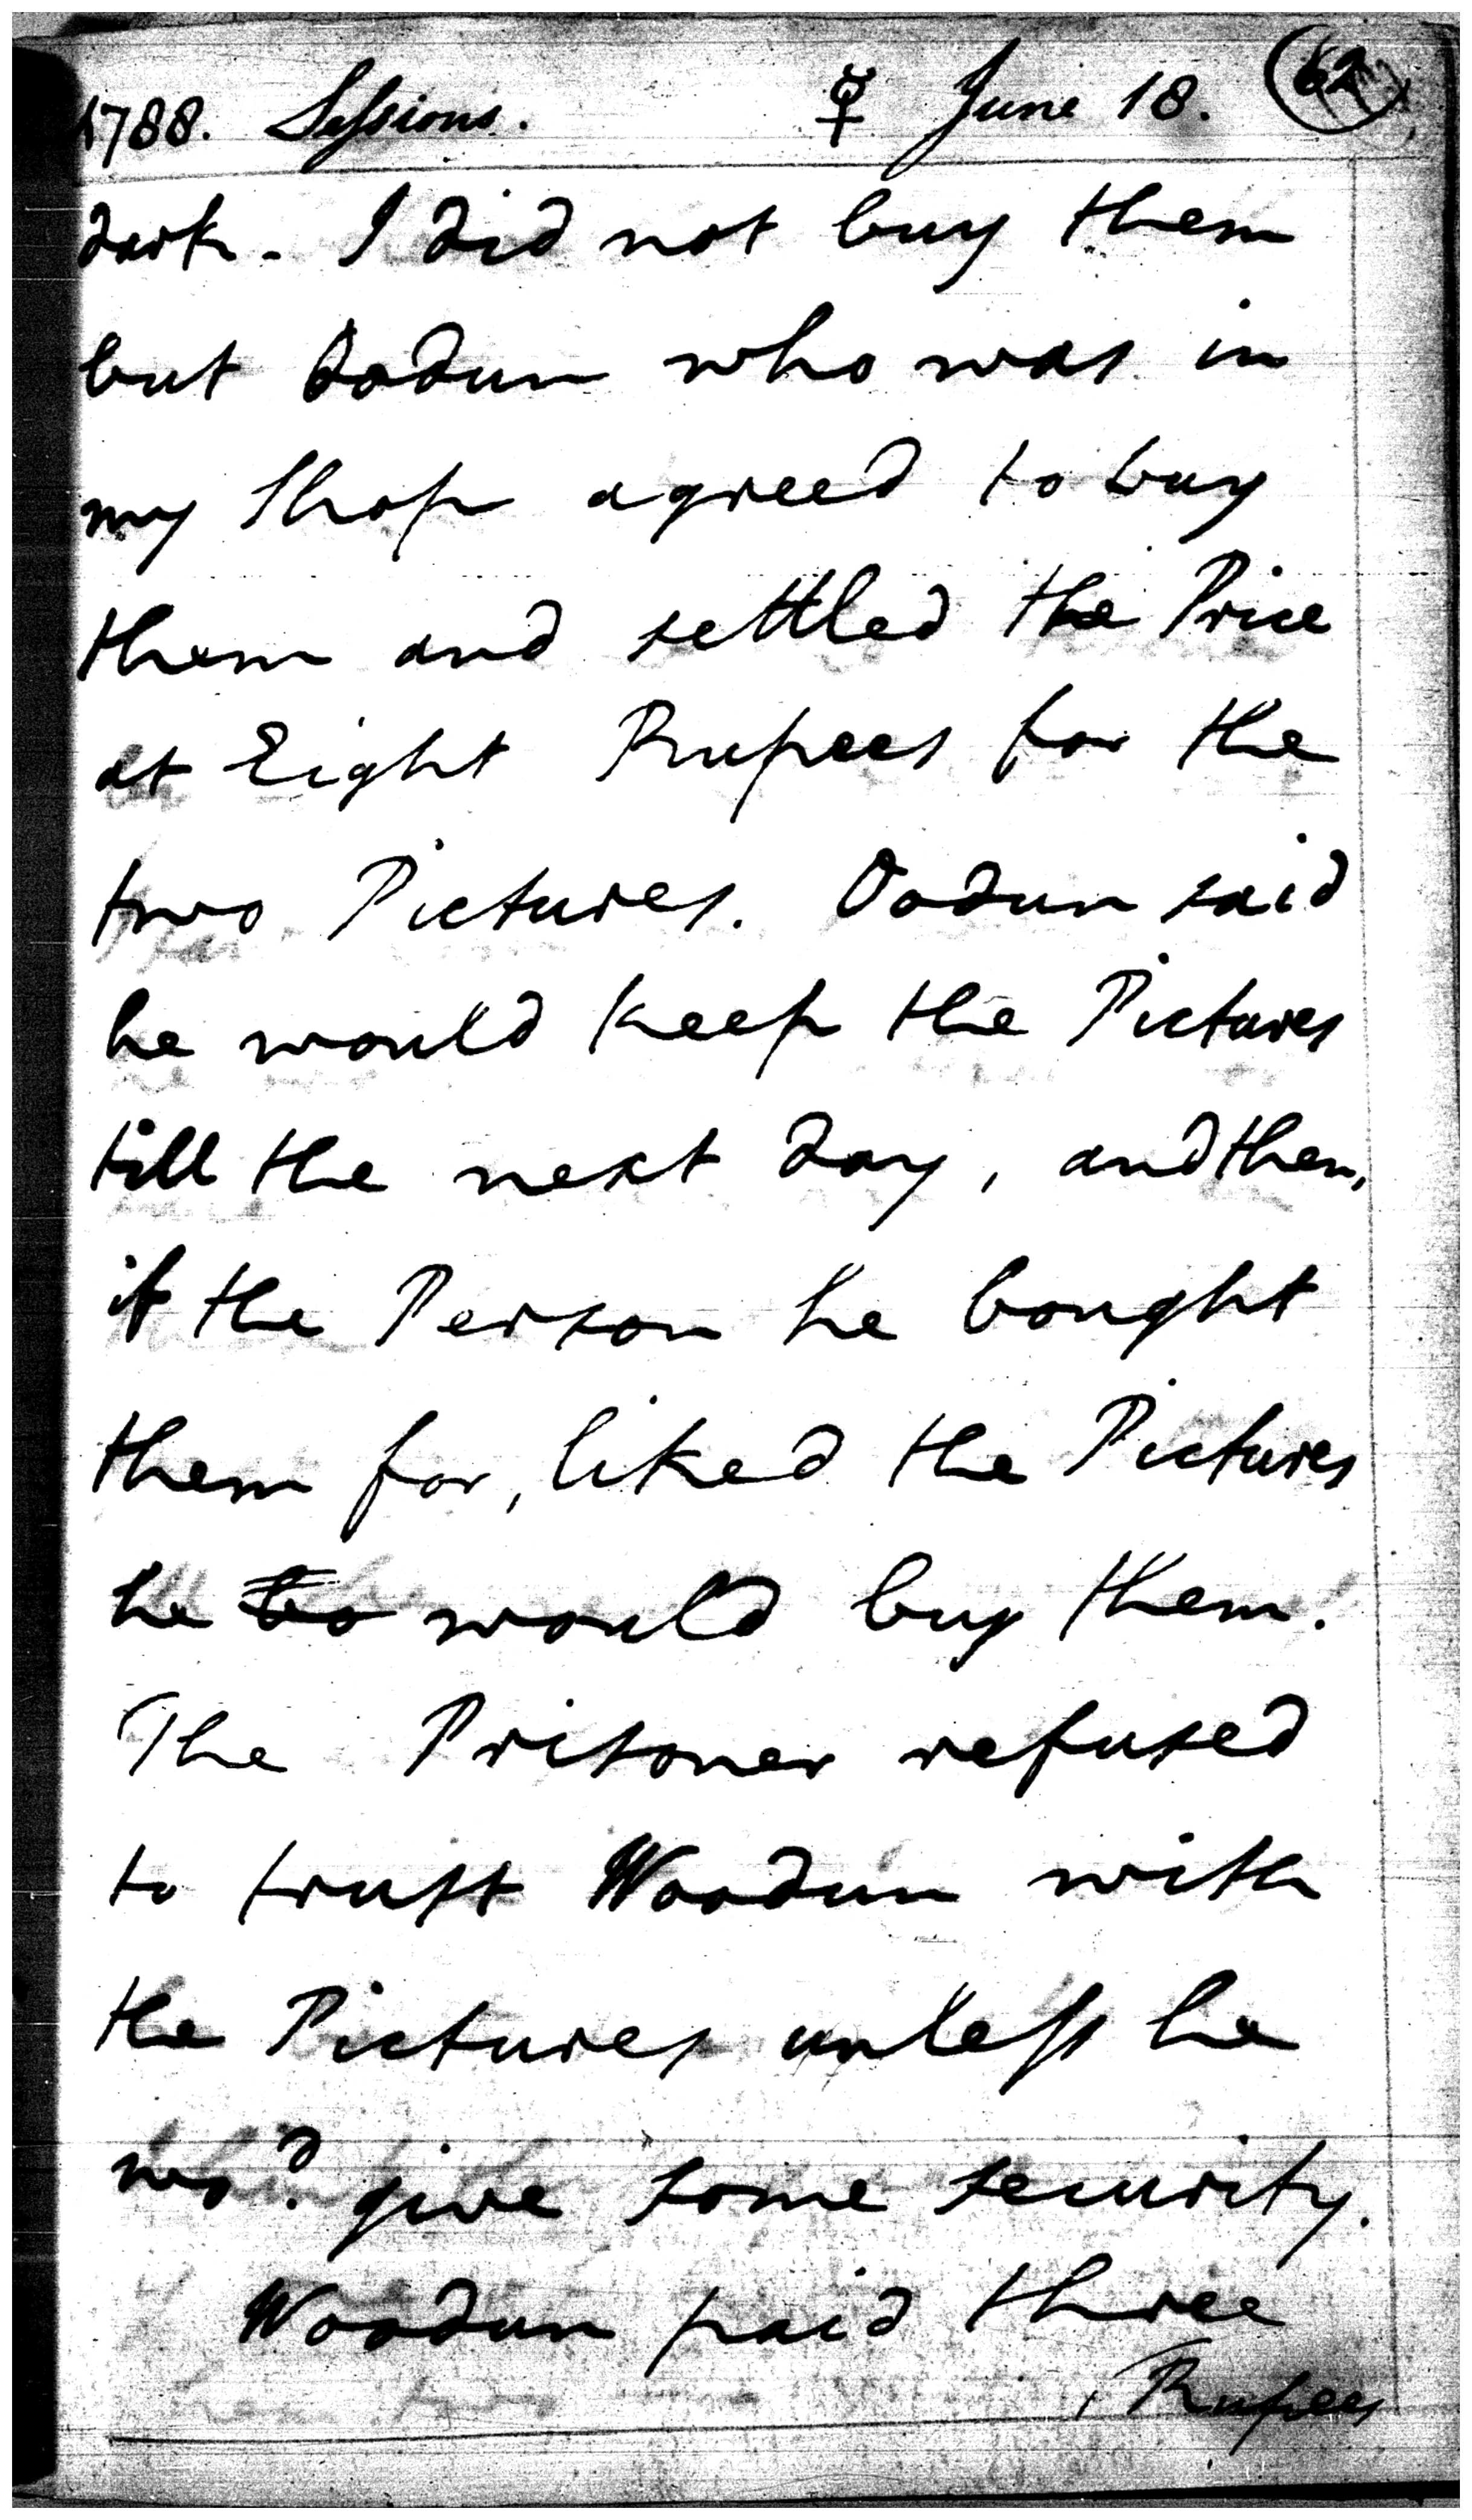 1788. Sessions. ☿ June 18. 62
dark - I did not buy them
but Oodun who was in
my Shop agreed to buy
them and settled the Price
at Eight Rupees for the
two Pictures. Oodun said
he would keep the Pictures
till the next day, and then,
if the Person he bought
them for, liked the Pictures
he to would buy them.
The Prisoner refused
to trust Woodun with
the Pictures unless he
wo.d give some security.
Woodun paid three
Rupees